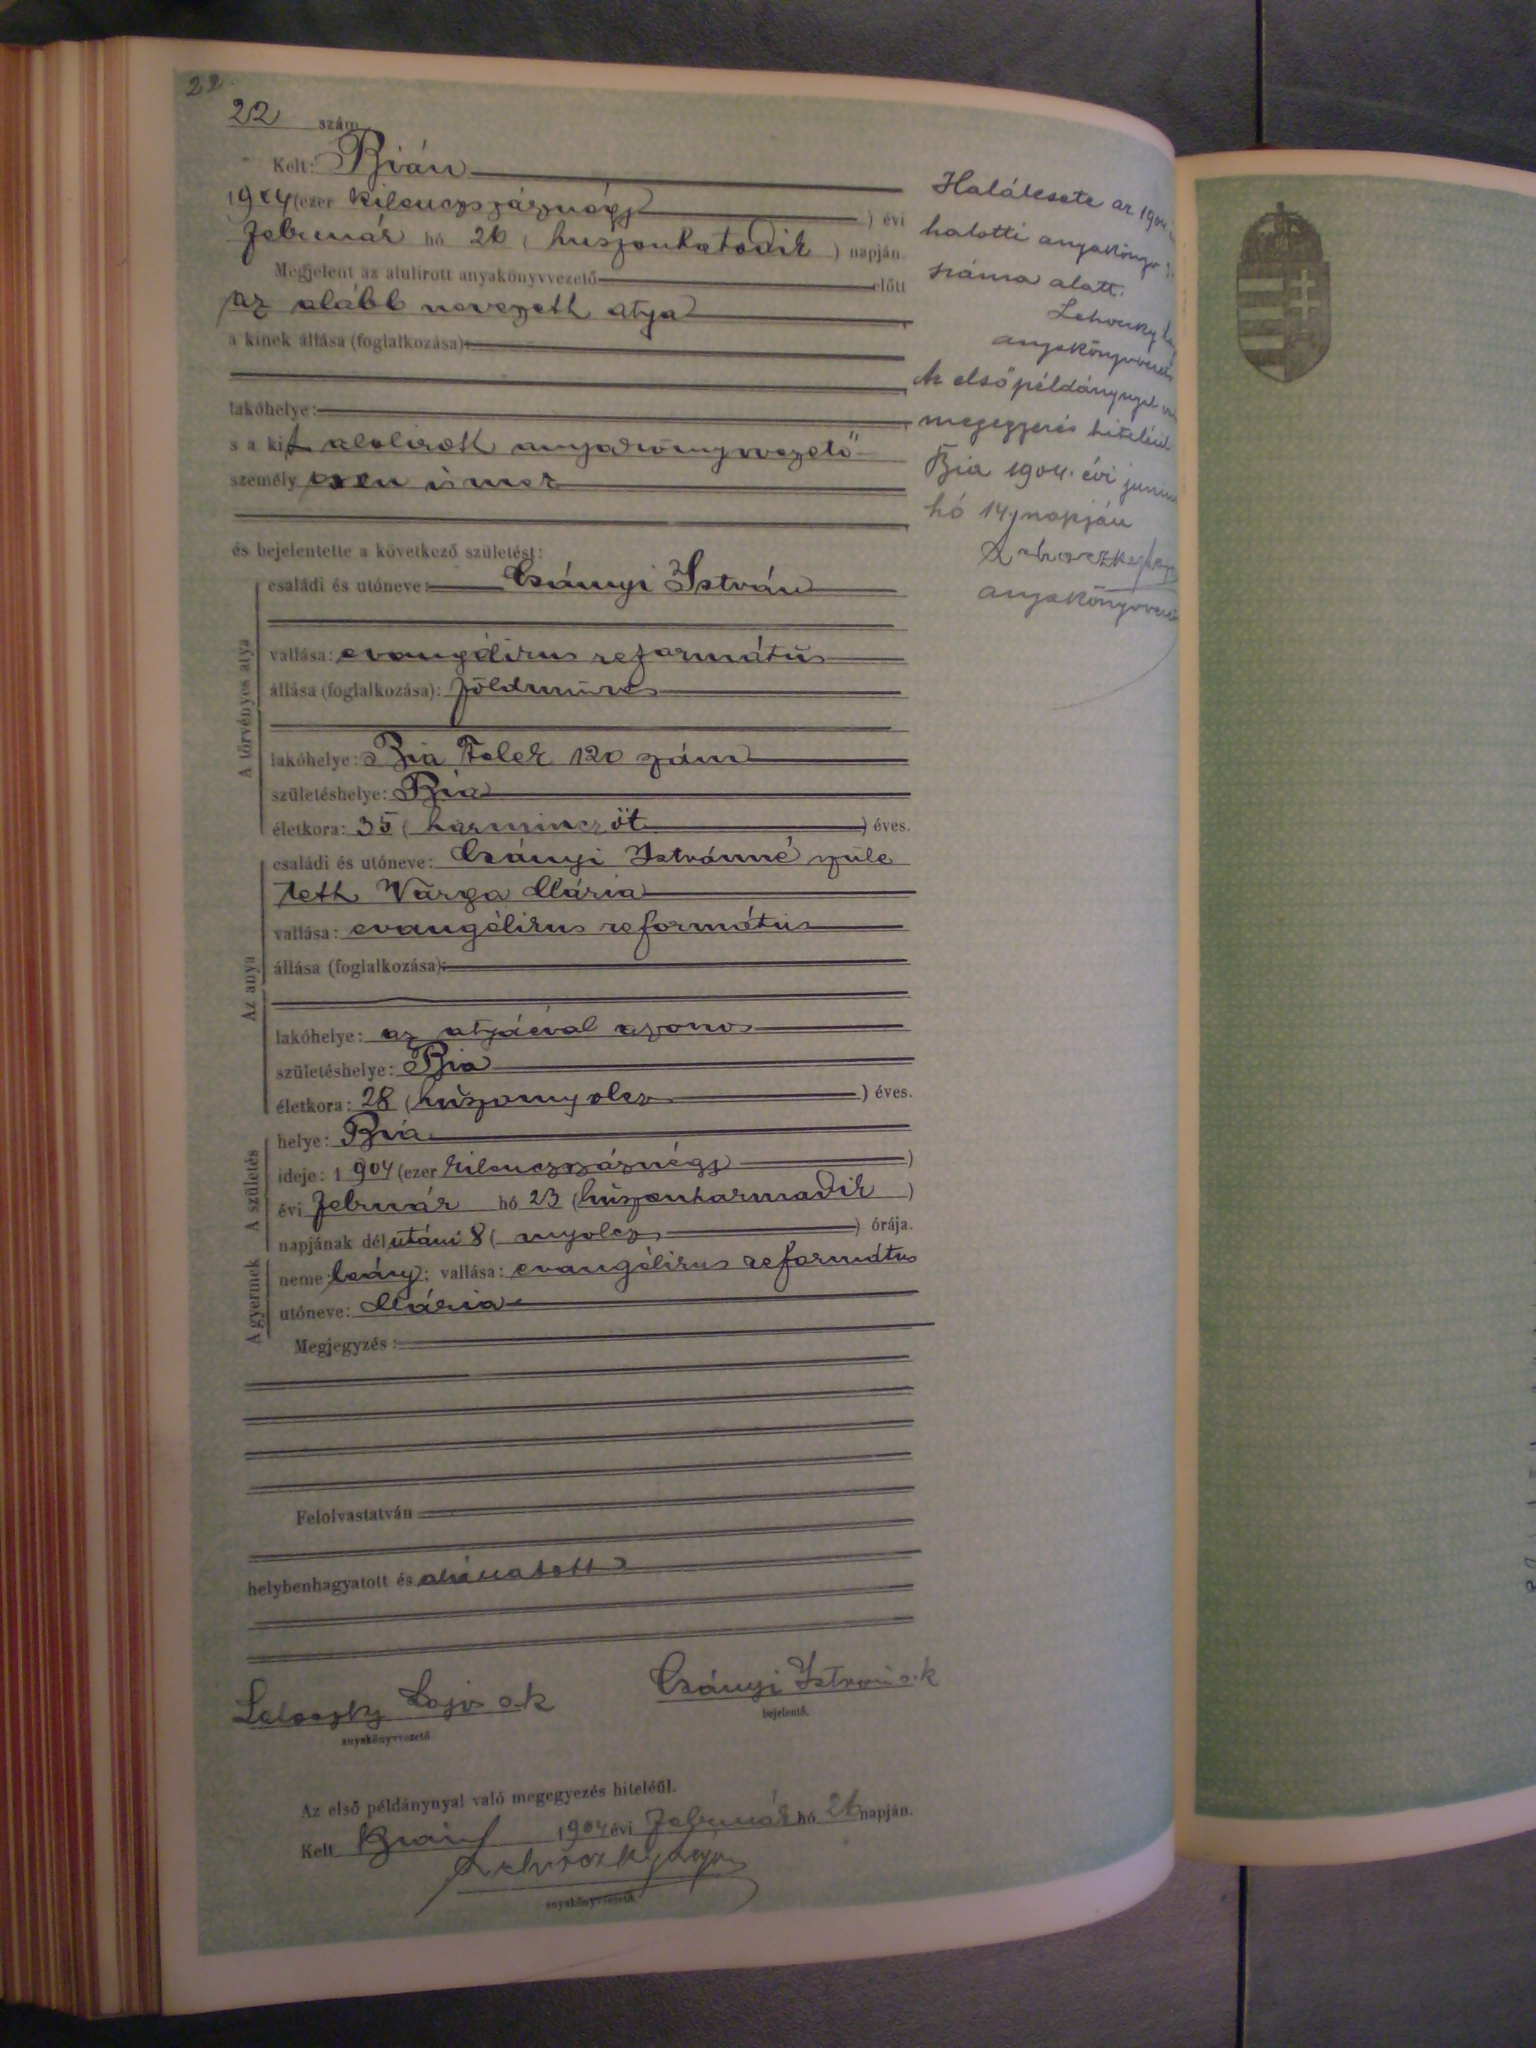 22
22 szám
Kelt: Bián
1904 (ezer kilenczszáznégy) évi
Február hó 26 (huszonhatodik) napján.
Megjelent az alulirott anyakönyvvezető előtt
az alább nevezett atya
a kinek állása (foglalkozása):
lakóhelye:
s a kit alolirott anyakönyvvezető
személyesen ismer
és bejelentette a következő születést:
A törvényes atya
családi és utóneve: Csányi István
vallása: evangélikus református
állása (foglalkozása): földmüves
lakóhelye: Bia Telek 120 szám
születéshelye: Bia
életkora: 35 (harminczöt) éves.
Az anya
családi és utóneve: Csányi Istvánné szüle
tett Varga Mária
vallása: evangélikus református
állása (foglalkozása):
lakóhelye: az atyáéval azonos
születéshelye: Bia
életkora: 28 (huszonnyolcz) éves.
A születés
helye: Bia
ideje: 1904 (ezer kilenczszáznégy)
évi Február hó 23 (huszonharmadik)
napjának délutáni 8 (nyolcz) órája.
A gyermek
neme: leány; vallása: evangélikus református
utóneve: Mária
Megjegyzés:
Felolvastatván
helybenhagyatott és aláiratott
Lehoczky Lajos s.k
anyakönyvvezető.
Csányi István s.k
bejelentő.
Az első példánynyal való megegyezés hiteléül.
Kelt Bián 1904 évi Február hó 26 napján.
Lehoczky Lajos
anyakönyvvezető.
Halálesete az 1904
halotti anyakönyv
száma alatt.
Lehoczky
anyakönyvvezető
Az első példánynyal
megegyezés hiteléül
Bia 1904. évi junius
hó 14 napján
Lehoczky
anyakönyvvezető